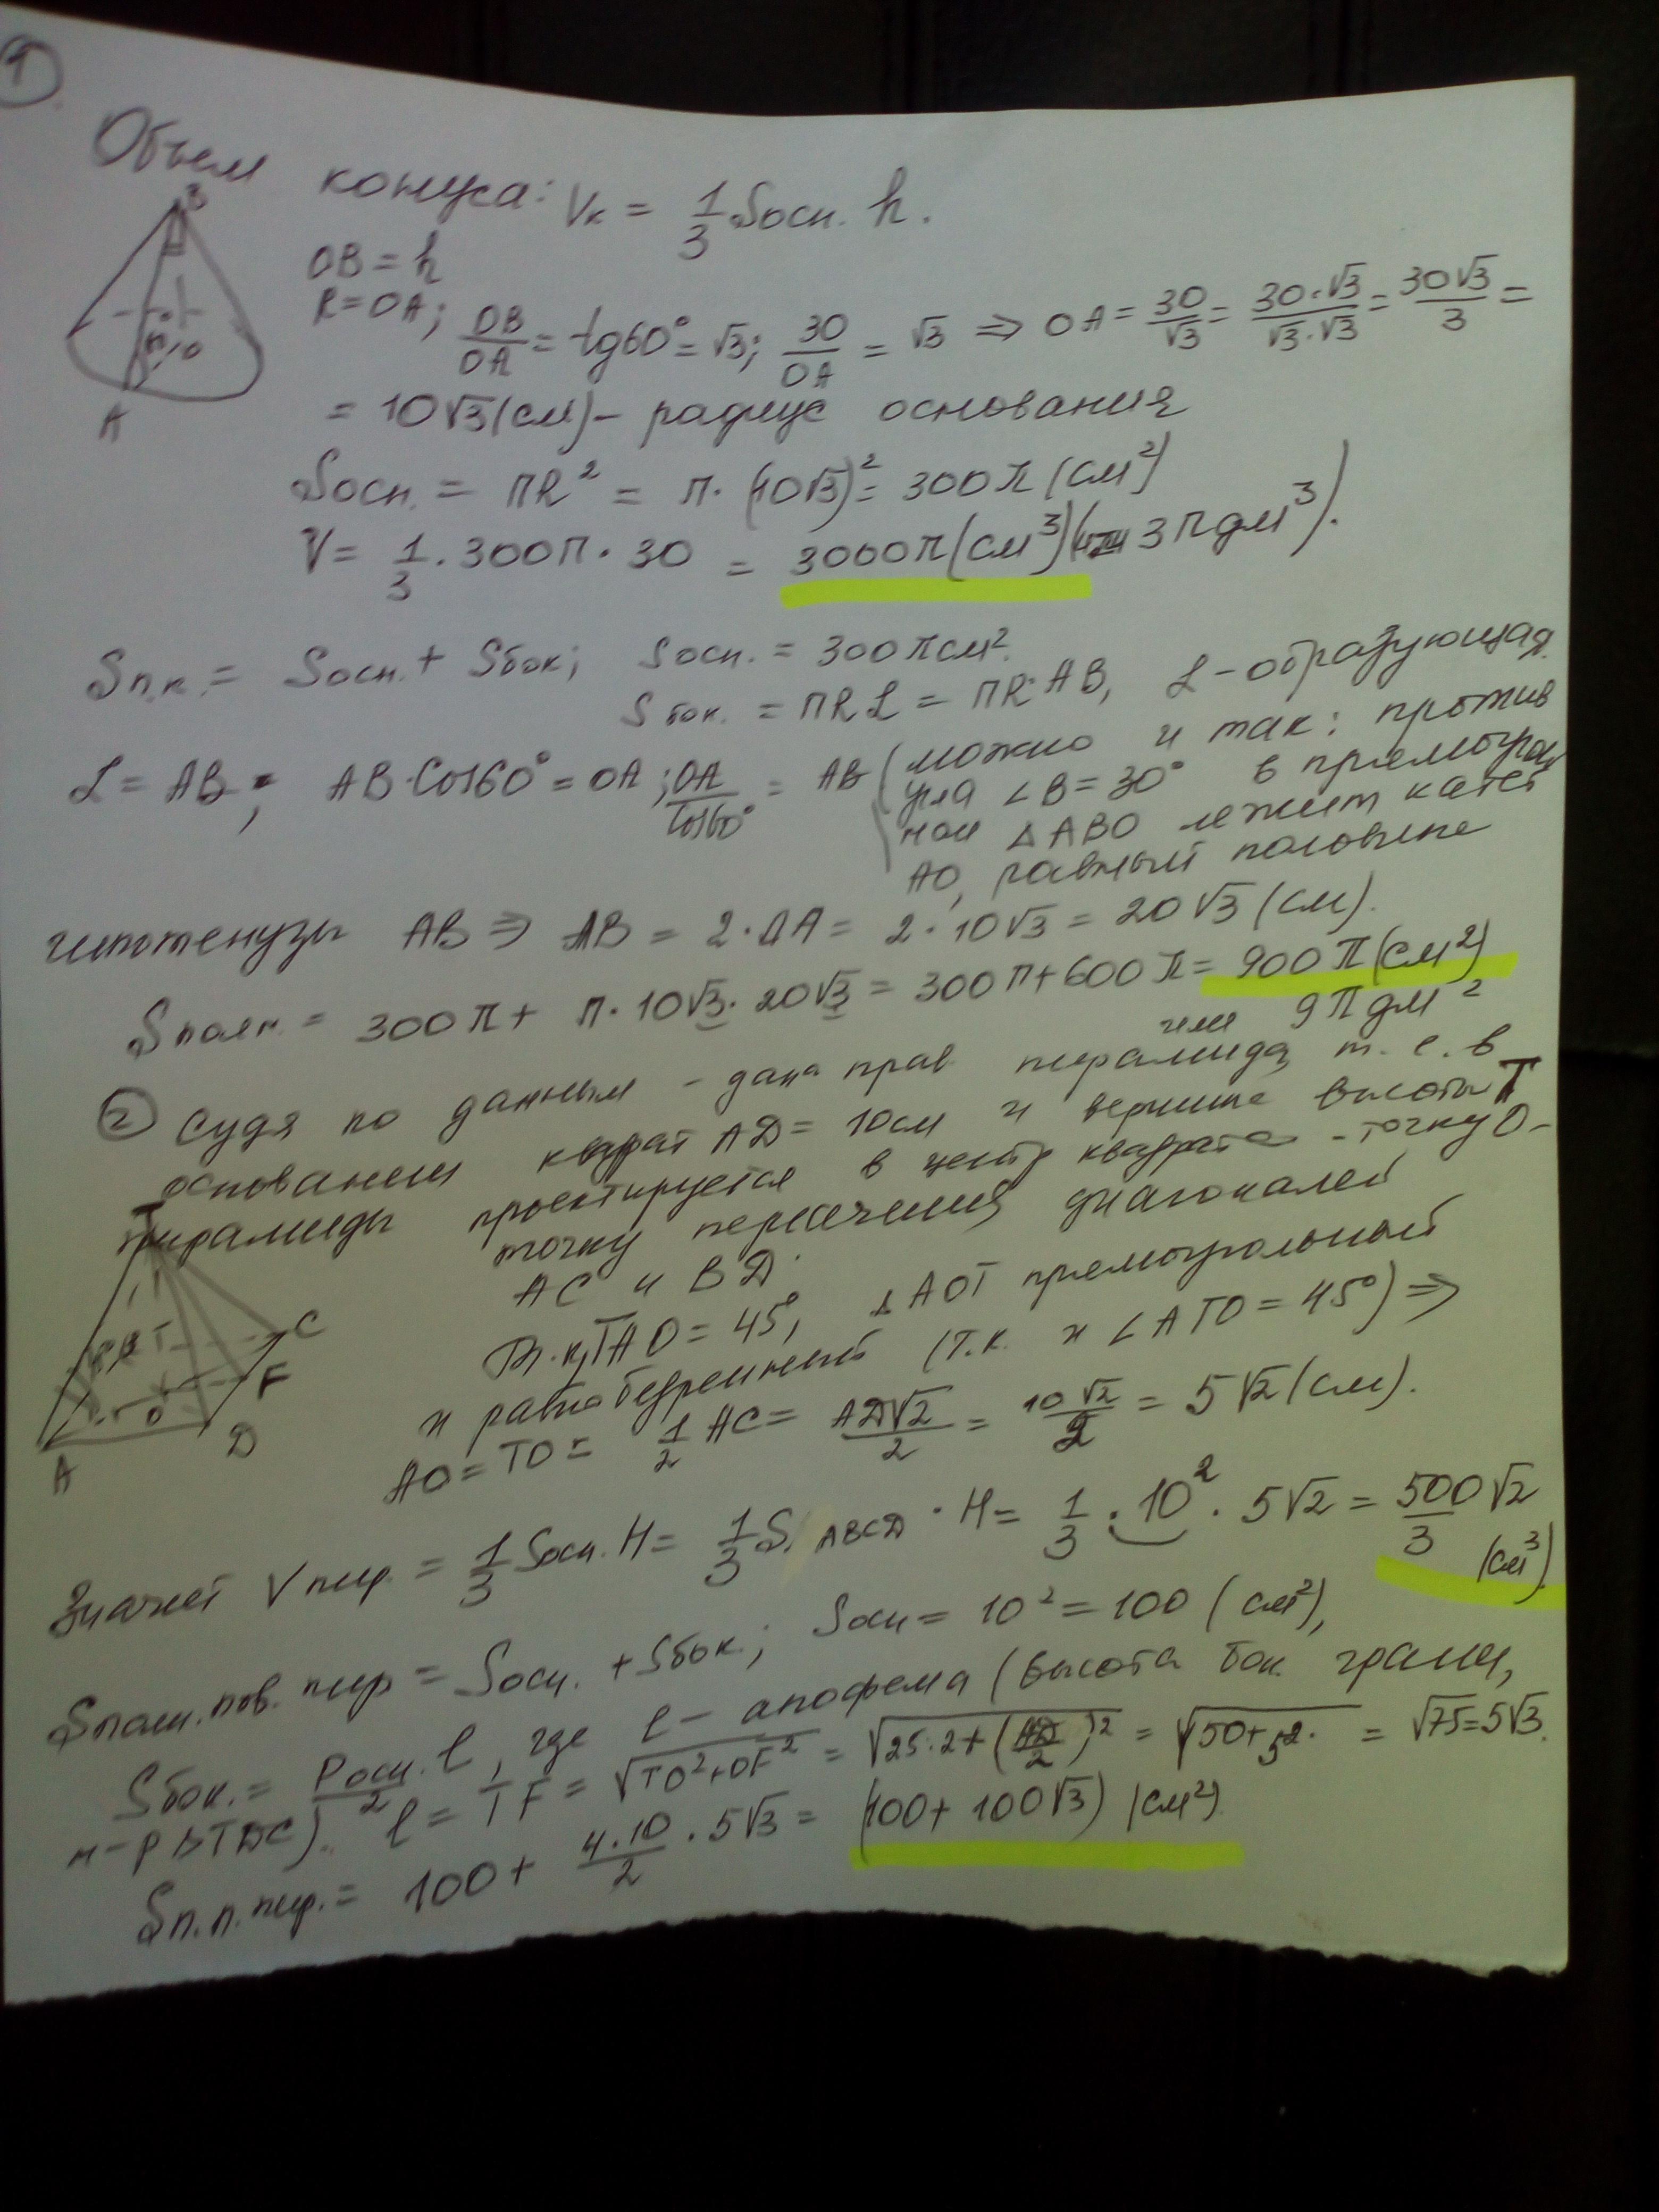 1
Объем конуса: Vк = 1/3 Sосн. h.
OB = h
R = OA; OB/OA = tg60° = √3; 30/OA = √3 ⇒ OA = 30/√3 = 30·√3/√3·√3 = 30√3/3 =
= 10√3 (см) – радиус основания
Sосн. = ПR² = П· (10√3)² = 300П (см²)
V = 1/3 · 300П · 30 = 3000П (см³) (или 3П дм³).
Sп.к. = Sосн. + Sбок; Sосн. = 300П см².
Sбок. = ПRL = ПR·AB, L – образующая.
L = AB; AB·Cos60° = OA; OA/Cos60° = AB (можно и так: против
угла ∠B = 30° в прямоуголь
ном △ABO лежит катет
AO, равный половине
гипотенузы AB ⇒ AB = 2·OA = 2·10√3 = 20√3 (см).
Sполн. = 300П + П·10√3·20√3 = 300П + 600П = 900П (см²)
или 9П дм²
2 Судя по данным – дана прав пирамида, т.е. в
основании квадрат AD = 10см и вершина высоты T
пирамиды проектируется в центр квадрата – точку O –
точку пересечения диагоналей
AC и BD.
Т.к. TAO = 45°, △AOT прямоугольный
и равнобедренный (т.к. и ∠ATO = 45°) ⇒
AO = TO = 1/2 AC = AD√2/2 = 10√2/2 = 5√2 (см).
Значит Vпир. = 1/3 Sосн. H = 1/3 S ABCD · H = 1/3 · 10² · 5√2 = 500√2/3
(см³)
Sполн. пов. пир = Sосн. + Sбок.; Sосн = 10² = 100 (см²),
Sбок. = Pосн./2 · l, где l – апофема (высота бок. грани,
н-р △TDC). l = TF = √TO²+OF² = √25·2+(AD/2)² = √50+5² = √75 = 5√3.
Sп.п. пир. = 100 + 4·10/2 · 5√3 = (100 + 100√3) (см²)
B
O
A
T
C
F
O
D
A